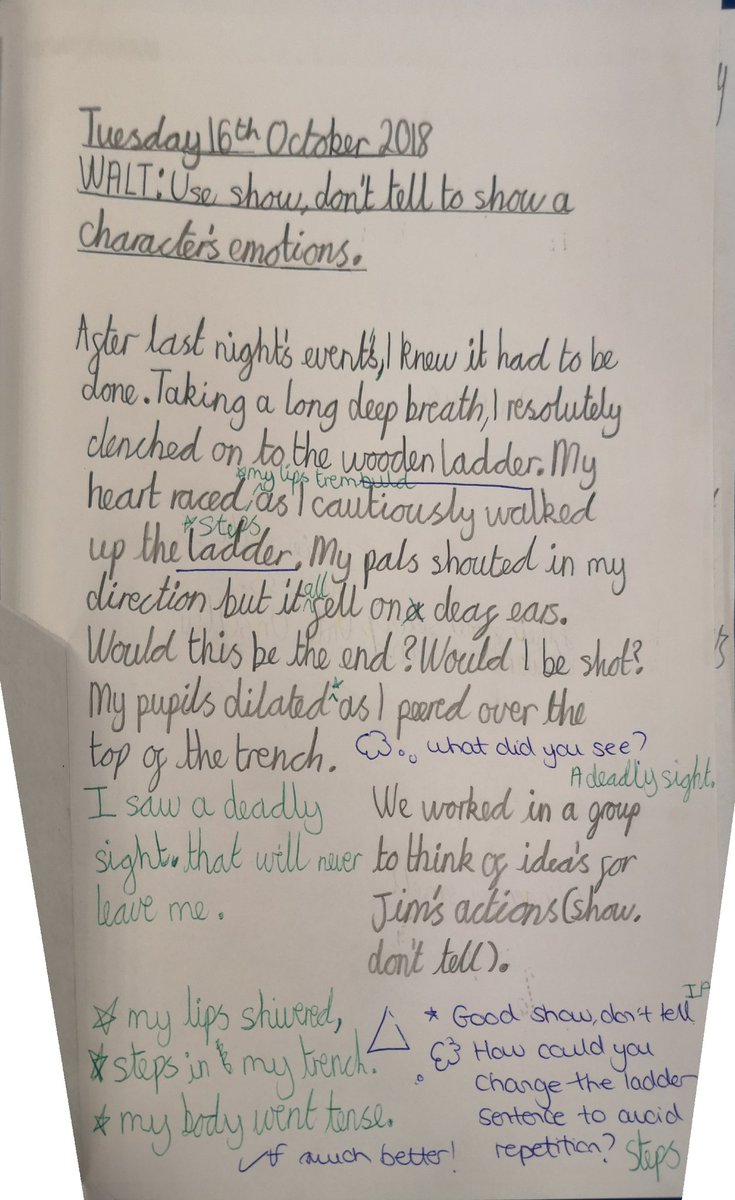 Tuesday 16th October 2018
WALT: Use show, don't tell to show a
character's emotions.
After last night's events, I knew it had to be
done. Taking a long deep breath, I resolutely
clenched on to the wooden ladder. My
*my lips trembuld
heart raced, as I cautiously walked
*steps
up the ladder. My pals shouted in my
all
direction but it fell on deaf ears.
Would this be the end? Would I be shot?
My pupils dilated* as I peered over the
top of the trench.
what did you see?
A deadly sight.
I saw a deadly
sight. that will never
leave me.
We worked in a group
to think of idea's for
Jim's actions (show.
don't tell).
* my lips shivered,
* steps in my trench.
* my body went tense.
much better!
* Good show, don't tell
How could you
change the ladder
sentence to avoid
repetition?
Steps